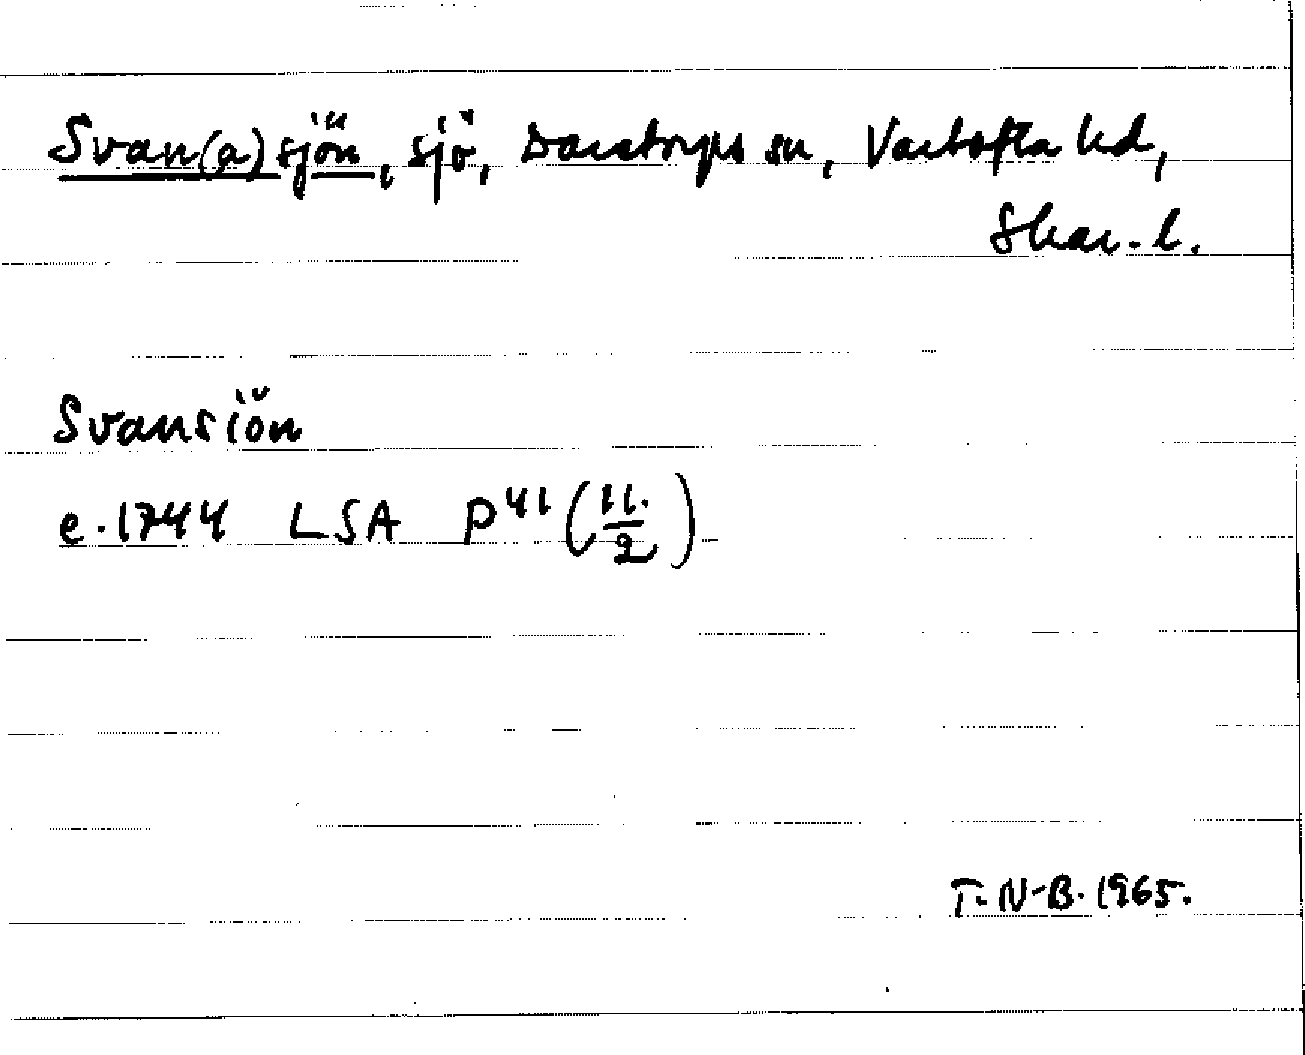 Svan(a)sjön, sjö, Daretorps sn, Vartofta hd,
Skar. l.
Svansiön
e. 1744 LSA P41 (11./2)
T. N-B. 1965.